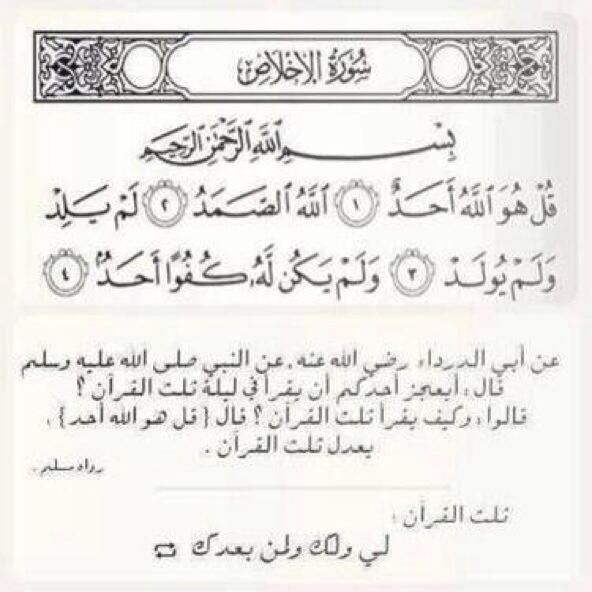 سُورَةُ الإِخْلَاصِ
بِسْمِ اللَّهِ الرَّحْمَٰنِ الرَّحِيمِ
قُلْ هُوَ اللَّهُ أَحَدٌ ١ اللَّهُ الصَّمَدُ ٢ لَمْ يَلِدْ
وَلَمْ يُولَدْ ٣ وَلَمْ يَكُن لَّهُ كُفُوًا أَحَدٌ ٤
عن أبي الدرداء رضي الله عنه، عن النبي صلى الله عليه وسلم
قال: أيعجز أحدكم أن يقرأ في ليلة ثلث القرآن ؟
قالوا: وكيف يقرأ ثلث القرآن ؟ قال { قل هو الله أحد } ،
يعدل ثلث القرآن .
رواه مسلم .
ثلث القرآن :
لي ولك ولمن بعدك